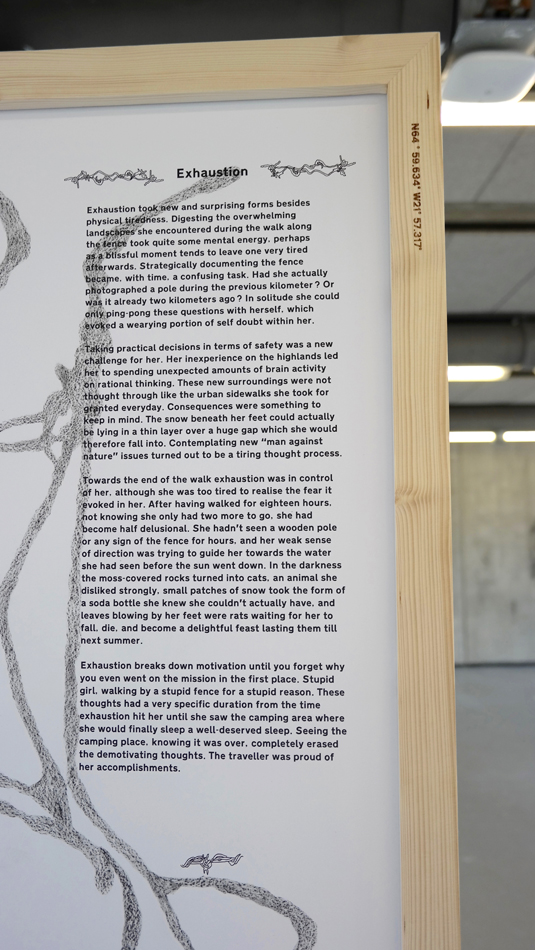 Exhaustion
Exhaustion took new and surprising forms besides
physical tiredness. Digesting the overwhelming
landscapes she encountered during the walk along
the fence took quite some mental energy, perhaps
as a blissful moment tends to leave one very tired
afterwards. Strategically documenting the fence
became, with time, a confusing task. Had she actually
photographed a pole during the previous kilometer? Or
was it already two kilometers ago? In solitude she could
only ping-pong these questions with herself, which
evoked a wearying portion of self doubt within her.
Taking practical decisions in terms of safety was a new
challenge for her. Her inexperience on the highlands led
her to spending unexpected amounts of brain activity
on rational thinking. These new surroundings were not
thought through like the urban sidewalks she took for
granted everyday. Consequences were something to
keep in mind. The snow beneath her feet could actually
be lying in a thin layer over a huge gap which she would
therefore fall into. Contemplating new "man against
nature" issues turned out to be a tiring thought process.
Towards the end of the walk exhaustion was in control
of her, although she was too tired to realise the fear it
evoked in her. After having walked for eighteen hours,
not knowing she only had two more to go, she had
become half delusional. She hadn't seen a wooden pole
or any sign of the fence for hours, and her weak sense
of direction was trying to guide her towards the water
she had seen before the sun went down. In the darkness
the moss-covered rocks turned into cats, an animal she
disliked strongly, small patches of snow took the form of
a soda bottle she knew she couldn't actually have, and
leaves blowing by her feet were rats waiting for her to
fall, die, and become a delightful feast lasting them till
next summer.
Exhaustion breaks down motivation until you forget why
you even went on the mission in the first place. Stupid
girl, walking by a stupid fence for a stupid reason. These
thoughts had a very specific duration from the time
exhaustion hit her until she saw the camping area where
she would finally sleep a well-deserved sleep. Seeing the
camping place, knowing it was over, completely erased
the demotivating thoughts. The traveller was proud of
her accomplishments.
N64° 59.634' W21° 57.317'